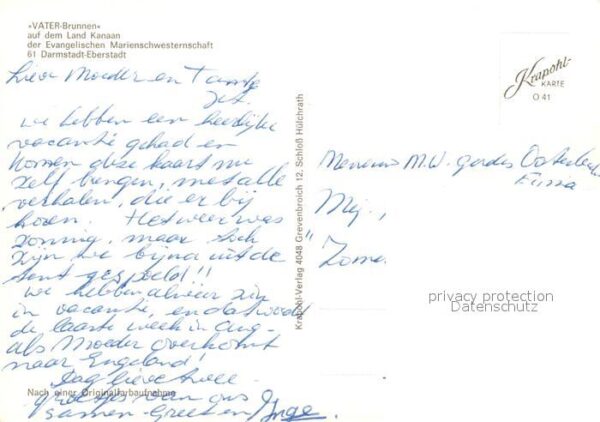 »VATER-Brunnen«
auf dem Land Kanaan
der Evangelischen Marienschwesternschaft
61 Darmstadt-Eberstadt
Krapohl-
KARTE
O 41
Lieve Moeder en Tante
Jet.
We hebben een heerlijke
vacantie gehad en
komen deze kaart nu
zelf brengen, met alle
verhalen, die er bij
horen. Het weer was
zonnig, maar toch
zijn we bijna uit de
tent gespoeld!!
We hebben alweer zin
in vacantie, en dat wordt
de laatste week in Aug-
als Moeder overkomt
naar Engeland!
Dag lieve twee
groetjes van ons
samen - Greet en Inge.
Krapohl-Verlag 4048 Grevenbroich 12, Schloß Hülchrath
Mevrouw M.W.
Mej.,
privacy protection
Datenschutz
Nach einer Originalfarbaufnahme